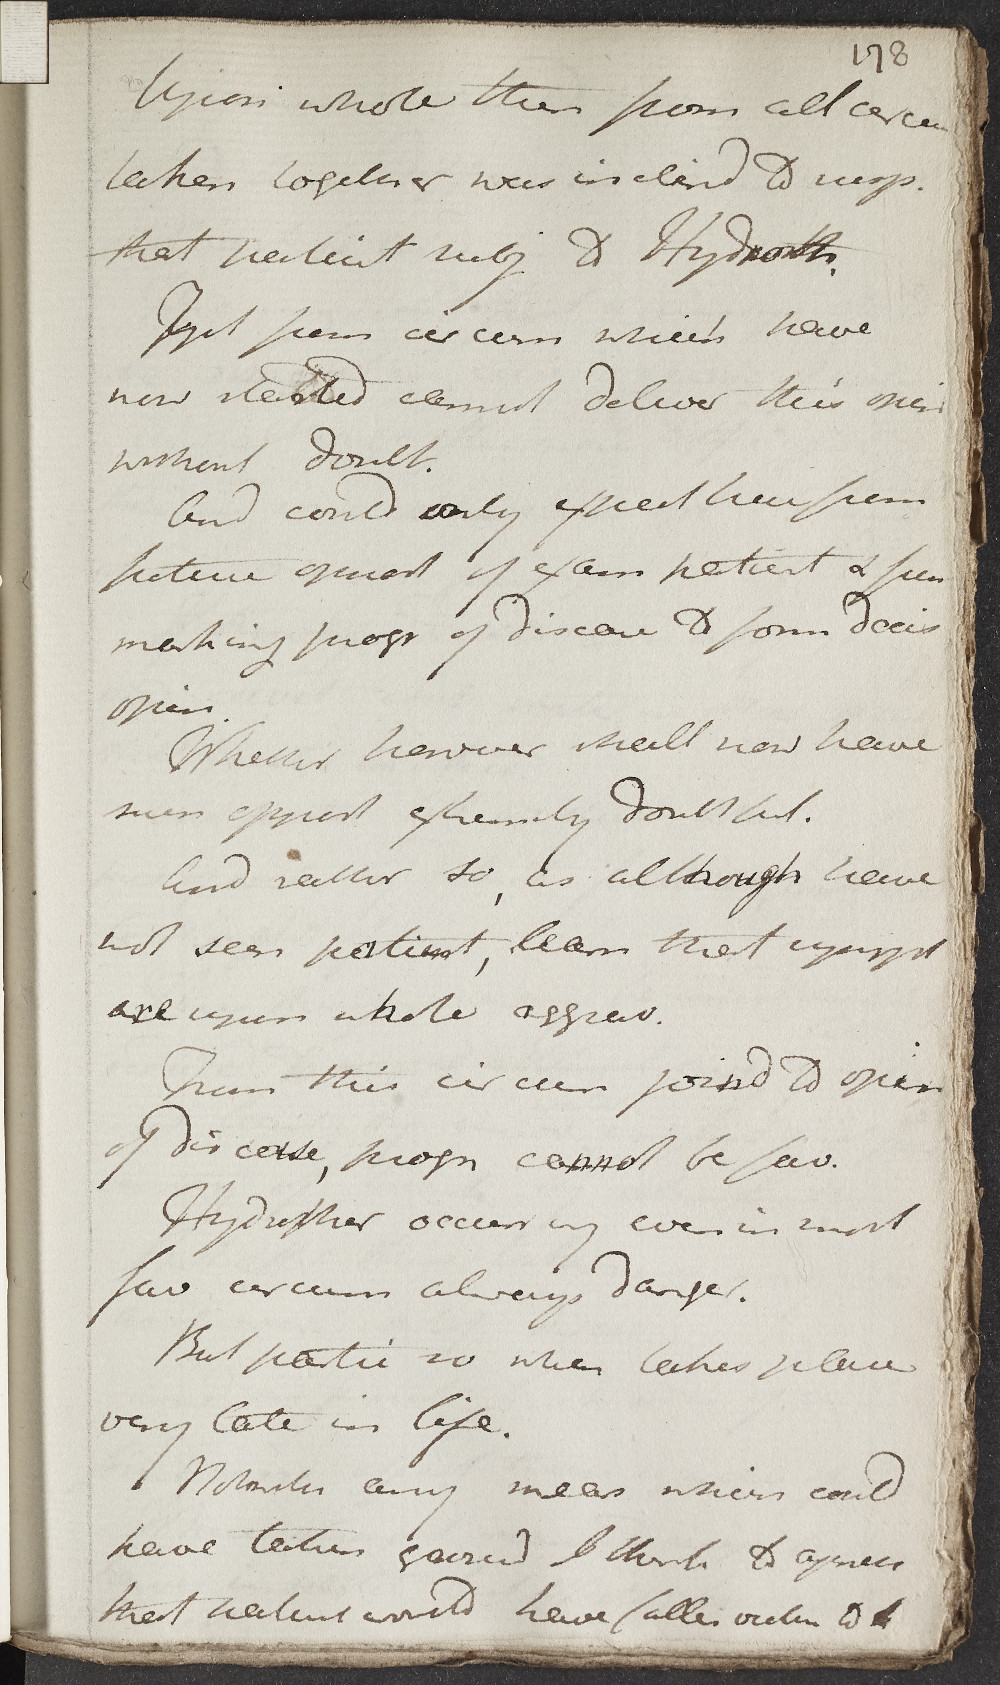 178
Upon whole then from all circum
taken together was inclind to susp.
that patient subj to Hydroth.
Yet from circum which have
now stated cannot deliver this opin
without doubt.
And could only expect here from
future opport of exam patient & from
marking progr of disease to form decis
opin.
Whether however shall now have
such opport extremely doubtful.
And rather so, as although have
not seen patient, learn that sympt
are upon whole aggrav.
From this circum joind to opin
of disease, progn cannot be fav.
Hydrother occurring even in most
fav circum always danger.
But partic so when takes place
very late in life.
Notwith any means which could
have taken ground I think to
that patient would have fallen victim to